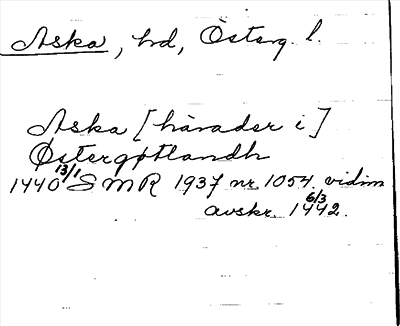 Aska, hd, Österg. l.
Aska [härader i]
Østergøtlandh
1440 13/1 SMR 1937 nr. 1054. vidim
avskr. 1442 6/3.